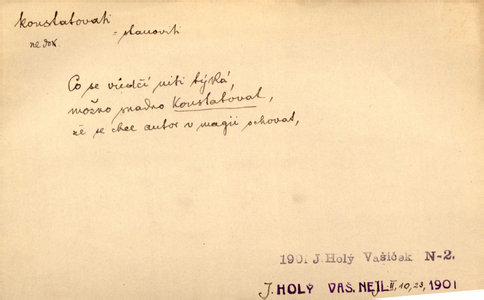 konstatovati
= stanoviti
ne dok.
Co se vůdčí niti týká,
možno snadno konstatovat,
že se chce autor v magii schovat,
1901 J. Holý Vašíček N-2.
J. HOLÝ VAŠ. NEJL. II, 10, 23, 1901